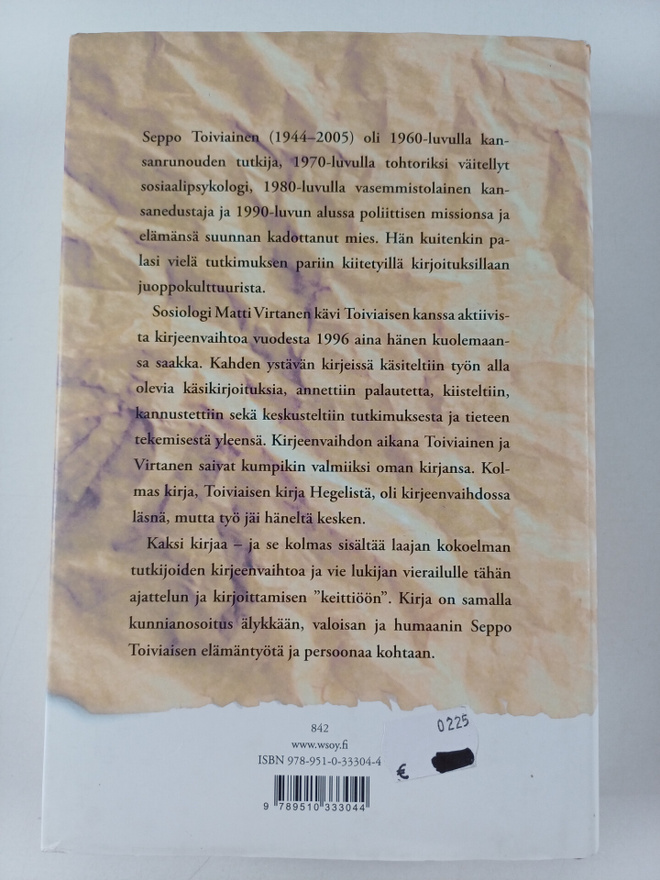 Seppo Toiviainen (1944–2005) oli 1960-luvulla kan-
sanrunouden tutkija, 1970-luvulla tohtoriksi väitellyt
sosiaalipsykologi, 1980-luvulla vasemmistolainen kan-
sanedustaja ja 1990-luvun alussa poliittisen missionsa ja
elämänsä suunnan kadottanut mies. Hän kuitenkin pa-
lasi vielä tutkimuksen pariin kiitetyillä kirjoituksillaan
juoppokulttuurista.
Sosiologi Matti Virtanen kävi Toiviaisen kanssa aktiivis-
ta kirjeenvaihtoa vuodesta 1996 aina hänen kuolemaan-
sa saakka. Kahden ystävän kirjeissä käsiteltiin työn alla
olevia käsikirjoituksia, annettiin palautetta, kiisteltiin,
kannustettiin sekä keskusteltiin tutkimuksesta ja tieteen
tekemisestä yleensä. Kirjeenvaihdon aikana Toiviainen ja
Virtanen saivat kumpikin valmiiksi oman kirjansa. Kol-
mas kirja, Toiviaisen kirja Hegelistä, oli kirjeenvaihdossa
läsnä, mutta työ jäi häneltä kesken.
Kaksi kirjaa – ja se kolmas sisältää laajan kokoelman
tutkijoiden kirjeenvaihtoa ja vie lukijan vierailulle tähän
ajattelun ja kirjoittamisen ”keittiöön”. Kirja on samalla
kunnianosoitus älykkään, valoisan ja humaanin Seppo
Toiviaisen elämäntyötä ja persoonaa kohtaan.
0225
€
842
www.wsoy.fi
ISBN 978-951-0-33304-4
9 789510 333044